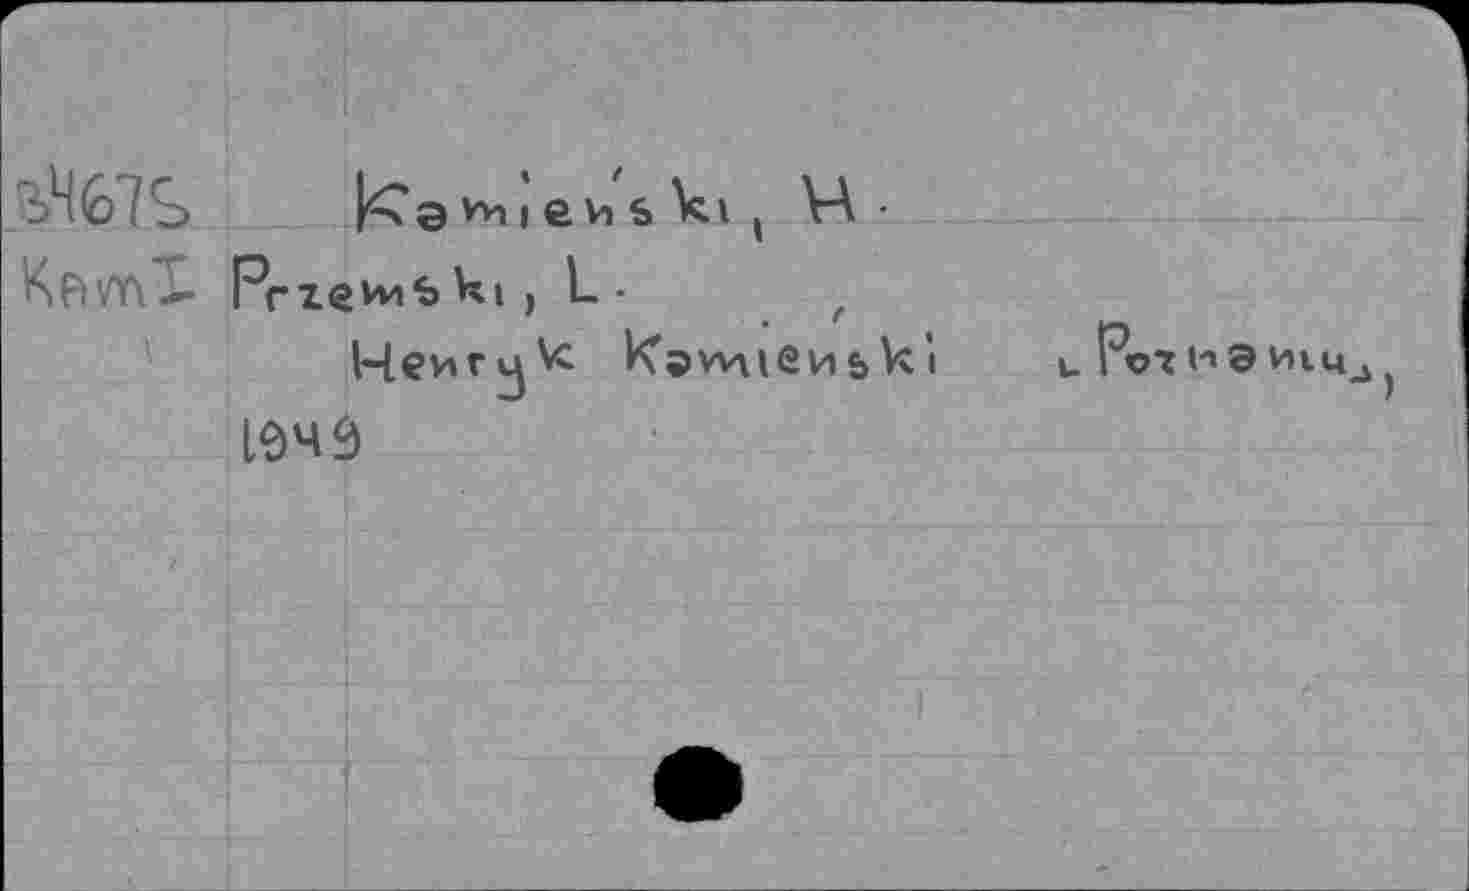 34675 Kamieński, H.
KAMI Przemski, L.
Henryk Kamieński Poznaniu,
1949